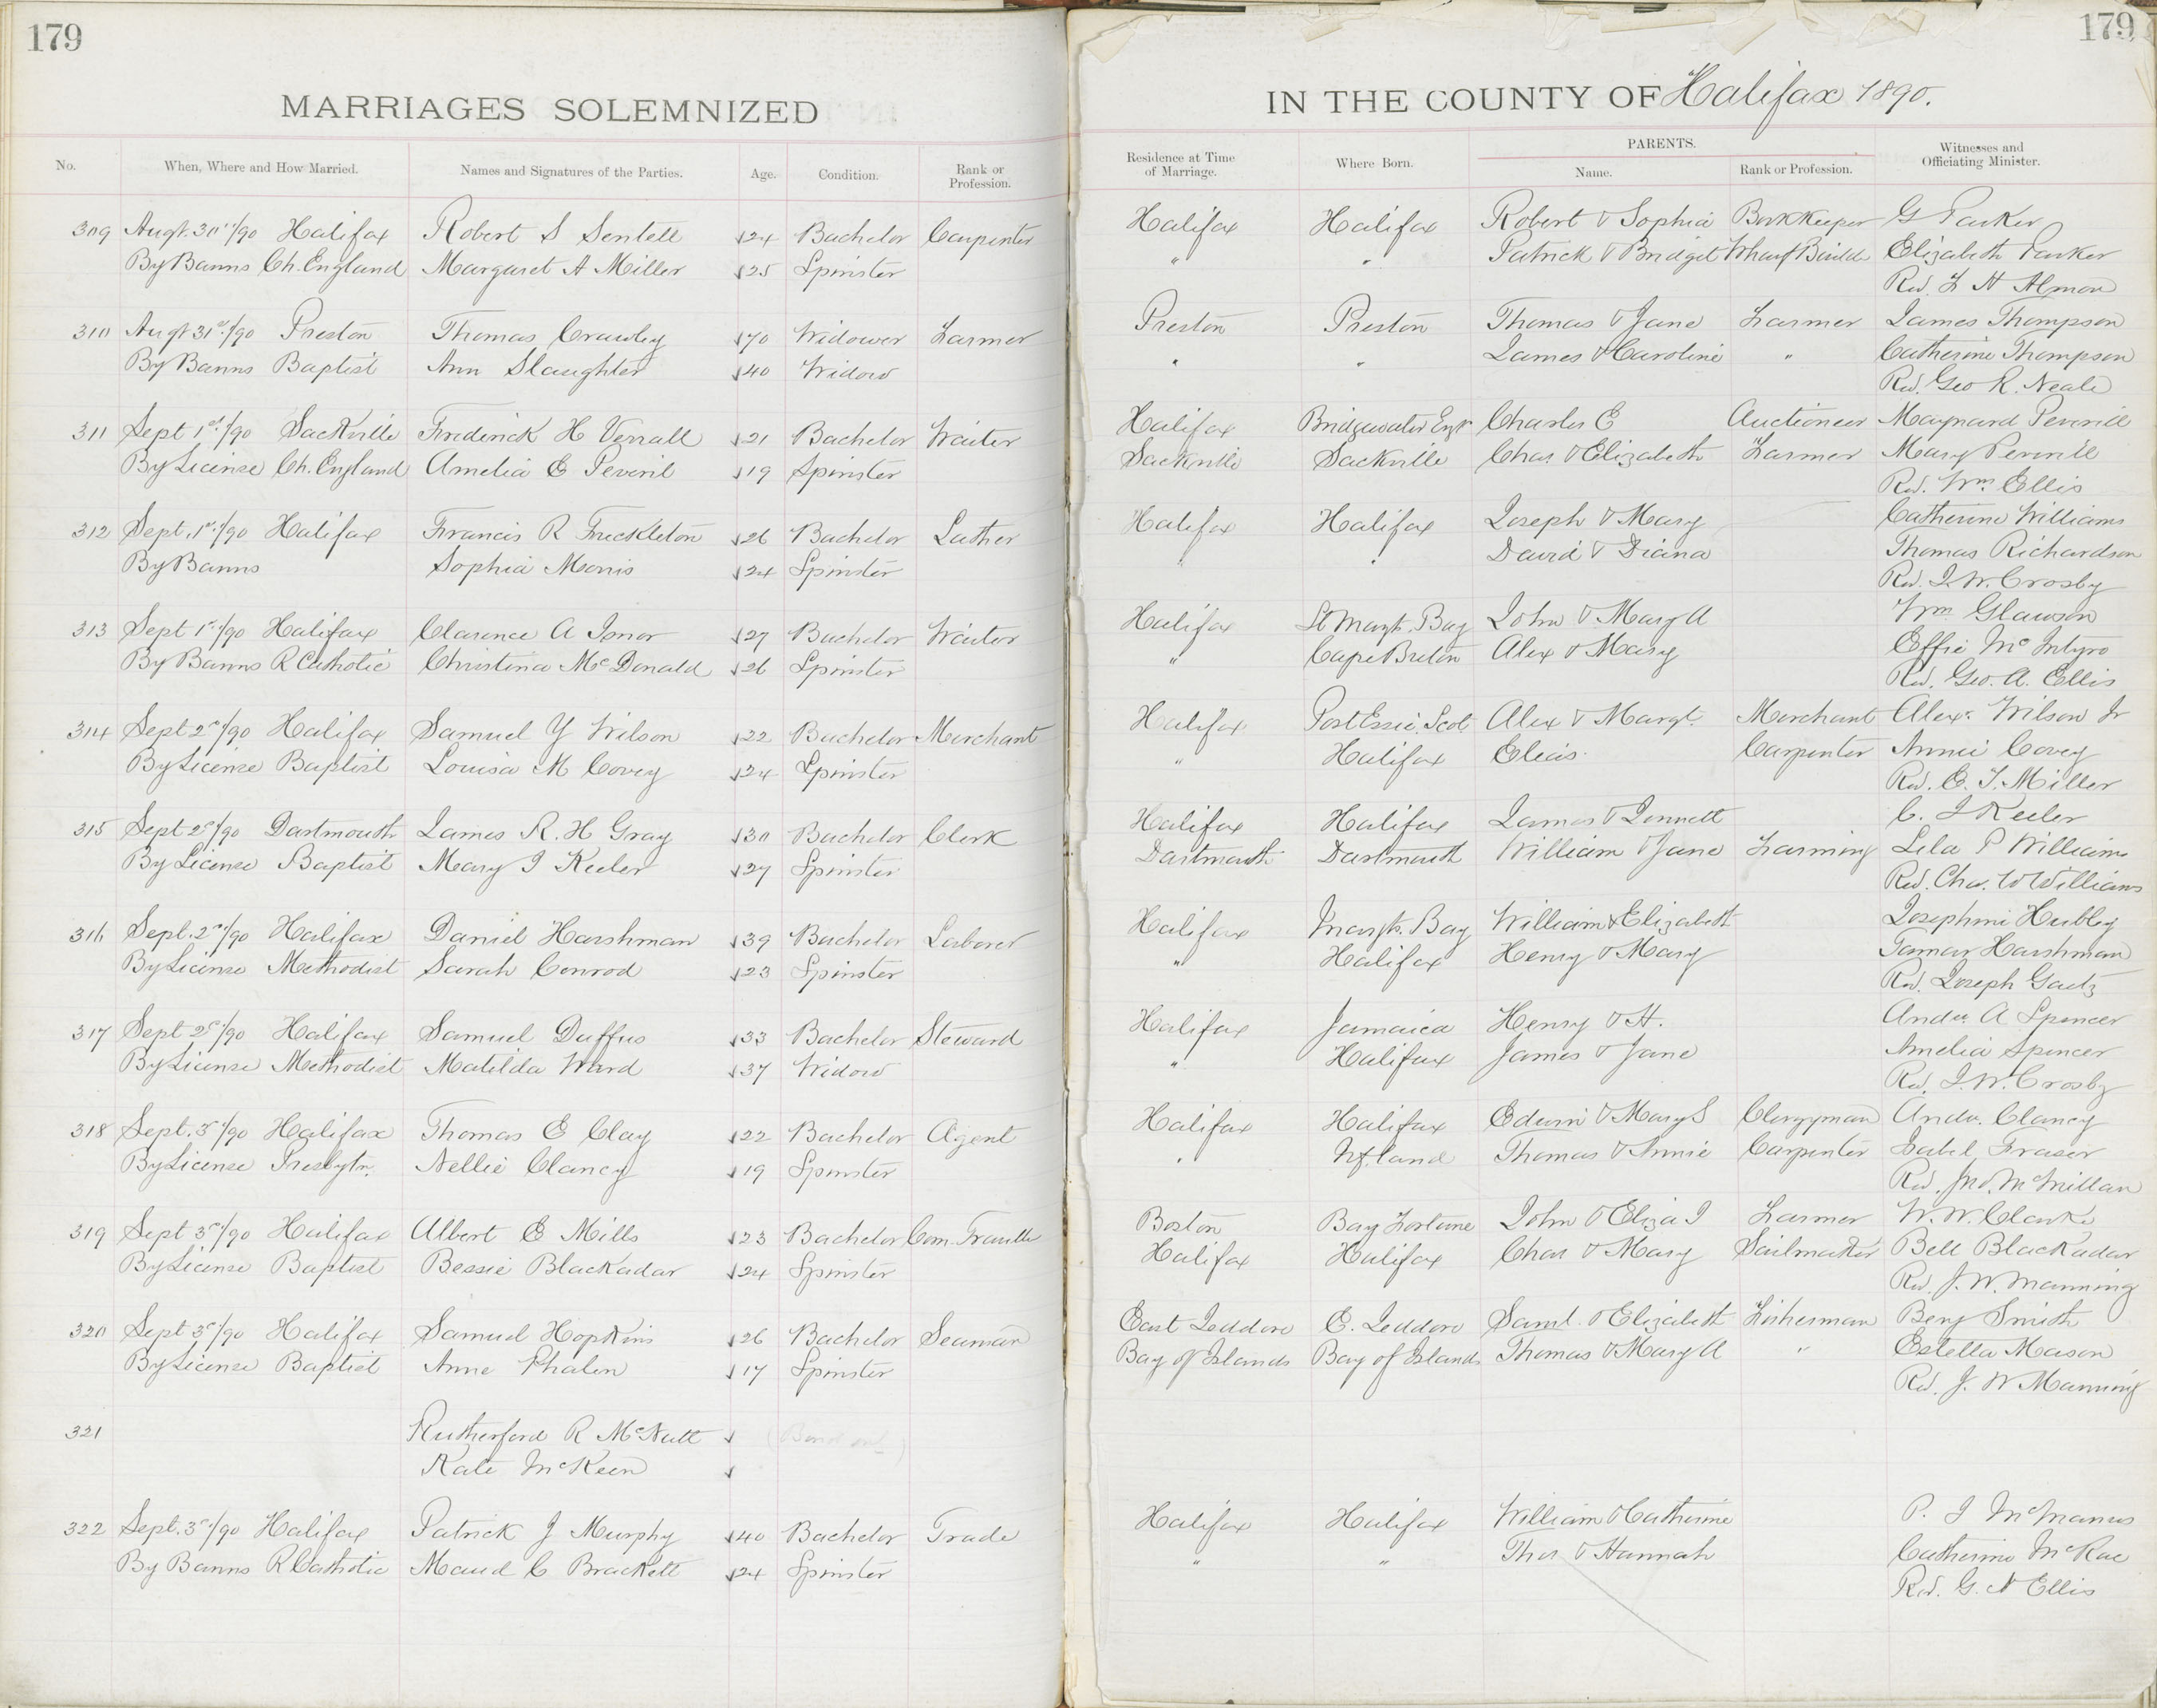 179
179
MARRIAGES SOLEMNIZED
IN THE COUNTY OF Halifax 1890.
No. When, Where and How Married. Names and Signatures of the Parties. Age. Condition. Rank or Profession. Residence at Time of Marriage. Where Born. PARENTS. Name. Rank or Profession. Witnesses and Officiating Minister.
309 Augt. 30th/90 Halifax Robert S Sentell 24 Bachelor Carpenter Halifax Halifax Robert & Sophia Bookkeeper G Parker
By Banns Ch. England Margaret A Miller 25 Spinster " " Patrick & Bridget Wharf Builder Elizabeth Parker
Rev. H Almon
310 Augt 31st/90 Preston Thomas Crawley 70 Widower Farmer Preston Preston Thomas & Jane Farmer James Thompson
By Banns Baptist Ann Slaughter 40 Widow " " James & Caroline " Catherine Thompson
Rev. Geo R. Neale
311 Sept 1st/90 Sackville Frederick H Verrall 21 Bachelor Waiter Halifax Bridgewater Eng Charles E Auctioneer Maynard Peverill
By License Ch. England Amelia E Peveril 19 Spinster Sackville Sackville Chas & Elizabeth Farmer Mary Peverill
Rev. Wm. Ellis
312 Sept. 1st/90 Halifax Francis R Freckleton 26 Bachelor Lather Halifax Halifax Joseph & Mary Catherine Williams
By Banns Sophia Morris 24 Spinster " " David & Diana Thomas Richardson
Rev. J. W. Crosby
313 Sept 1st/90 Halifax Clarence A Isnor 27 Bachelor Waiter Halifax St Margts. Bay John & Mary A Wm Glawson
By Banns R Catholic Christina McDonald 26 Spinster " Cape Breton Alex & Mary Effie McIntyre
Rev. Geo. A. Ellis
314 Sept 2d/90 Halifax Samuel Y Wilson 22 Bachelor Merchant Halifax Port Essie Scot Alex & Margt. Merchant Alex. Wilson Jr
By License Baptist Louisa M Covey 24 Spinster " Halifax Elias Carpenter Annie Covey
Rev. E. T. Miller
315 Sept 2d/90 Dartmouth James R. H Gray 30 Bachelor Clerk Halifax Halifax James & Jennett C. J Keeler
By License Baptist Mary J Keeler 27 Spinster Dartmouth Dartmouth William & Jane Farming Lela P Williams
Rev. Chas. W Williams
316 Sept. 2d/90 Halifax Daniel Harshman 39 Bachelor Laborer Halifax Margts. Bay William & Elizabeth Josephine Hubley
By License Methodist Sarah Conrod 23 Spinster " Halifax Henry & Mary Tamar Harshman
Rev. Joseph Gaetz
317 Sept 2d/90 Halifax Samuel Duffus 33 Bachelor Steward Halifax Jamaica Henry & H. Andw. A Spencer
By License Methodist Matilda Ward 37 Widow " Halifax James & Jane Amelia Spencer
Rev. J. W. Crosby
318 Sept. 3d/90 Halifax Thomas E Clay 22 Bachelor Agent Halifax Halifax Edwin & Mary S Clergyman Andw. Clancy
By License Presbytn. Nellie Clancy 19 Spinster " Nfland Thomas & Annie Carpenter Isabel Fraser
Rev. Jno. McMillan
319 Sept 3d/90 Halifax Albert E Mills 23 Bachelor Com. Traveller Boston Bay Fortune John & Eliza J Farmer W. W. Clarke
By License Baptist Bessie Blackadar 24 Spinster Halifax Halifax Chas & Mary Sailmaker Bell Blackadar
Rev. J. W. Manning
320 Sept 3d/90 Halifax Samuel Hopkins 26 Bachelor Seaman East Jeddore E. Jeddore Saml. & Elizabeth Fisherman Benj Smith
By License Baptist Anne Phalen 17 Spinster Bay of Islands Bay of Islands Thomas & Mary A " Estella Mason
Rev. J. W Manning
321 Rutherford R McNutt
Kate McKeen
322 Sept. 3d/90 Halifax Patrick J Murphy 40 Bachelor Trade Halifax Halifax William & Catherine P. J McManus
By Banns R Catholic Maud C Brackett 24 Spinster " " Thos & Hannah Catherine McRae
Rev. G. Ellis